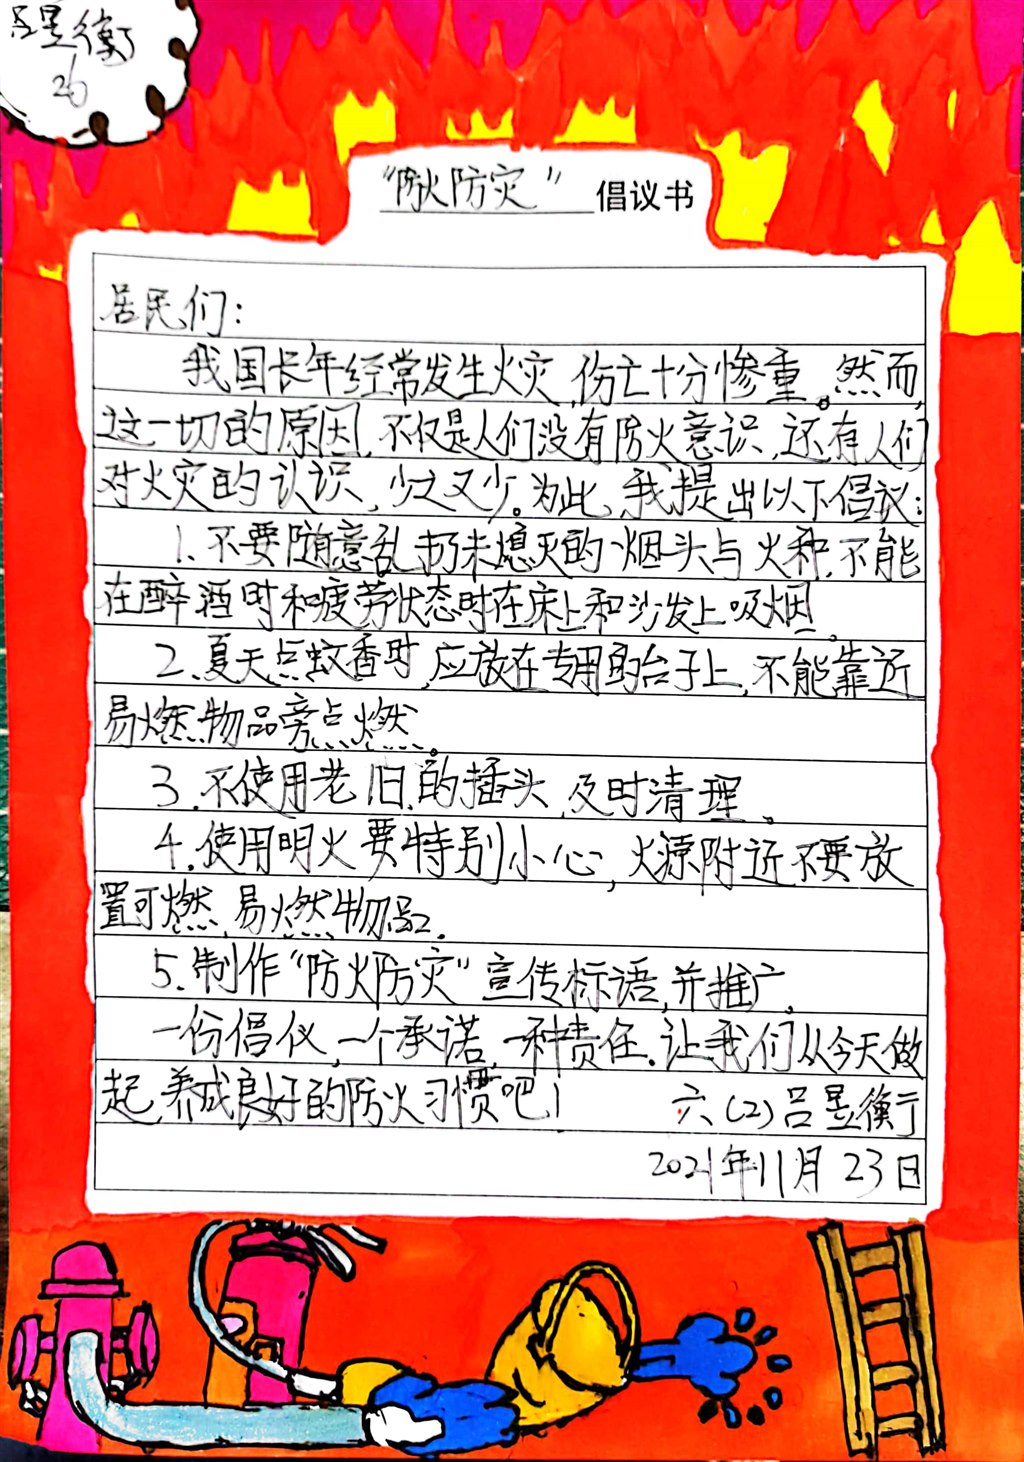 吕昱衡
26
“防火防灾”倡议书
居民们：
我国长年经常发生火灾,伤亡十分惨重。然而,
这一切的原因,不仅是人们没有防火意识,还有人们
对火灾的认识,少之又少。为此,我提出以下倡议：
1.不要随意乱扔未熄灭的烟头与火种,不能
在醉酒时和疲劳状态时在床上和沙发上吸烟。
2.夏天点蚊香时,应放在专用的台子上,不能靠近
易燃物品旁点燃。
3.不使用老旧的插头,及时清理。
4.使用明火要特别小心,火源附近不要放
置可燃,易燃物品.
5.制作“防火防灾”宣传标语,并推广。
一份倡仪,一个承诺,一种责任.让我们从今天做
起,养成良好的防火习惯吧! 六(2)吕昱衡
2021年11月23日